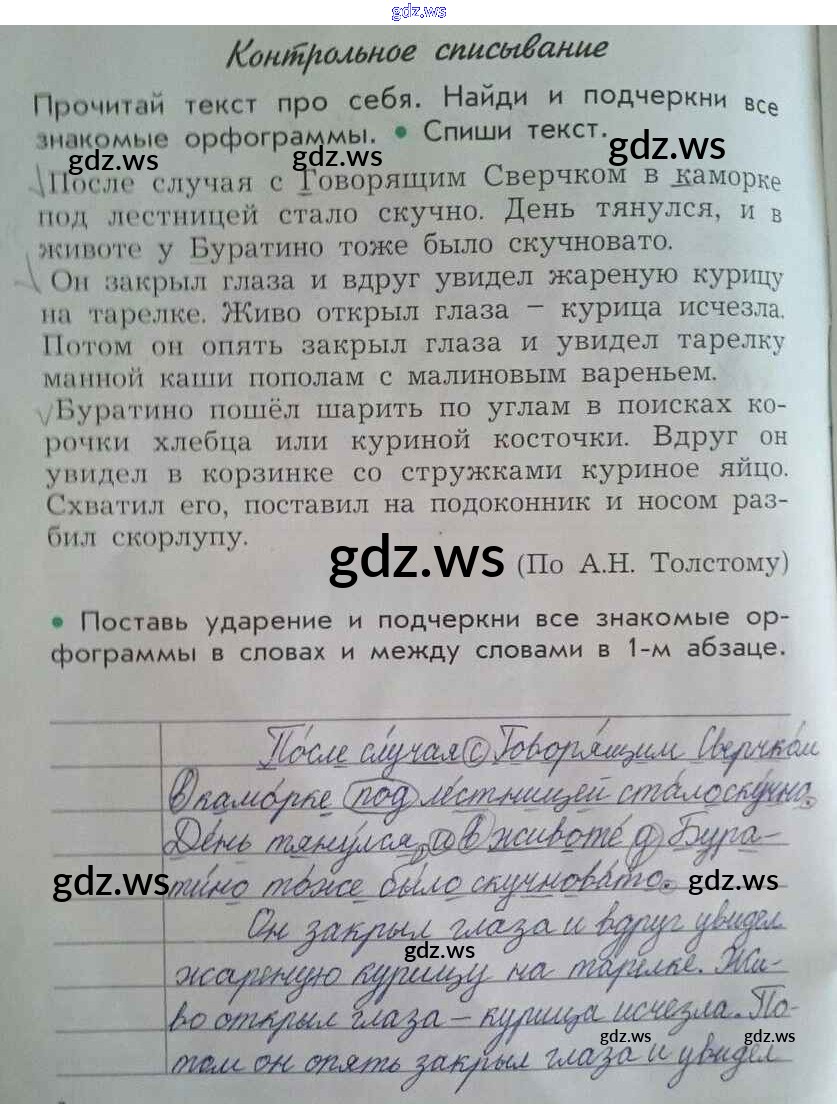 gdz.ws
Контрольное списывание
Прочитай текст про себя. Найди и подчеркни все
знакомые орфограммы. • Спиши текст.
gdz.ws gdz.ws gdz.ws
После случая с Говорящим Сверчком в каморке
под лестницей стало скучно. День тянулся, и в
животе у Буратино тоже было скучновато.
Он закрыл глаза и вдруг увидел жареную курицу
на тарелке. Живо открыл глаза – курица исчезла.
Потом он опять закрыл глаза и увидел тарелку
манной каши пополам с малиновым вареньем.
Буратино пошёл шарить по углам в поисках ко-
рочки хлебца или куриной косточки. Вдруг он
увидел в корзинке со стружками куриное яйцо.
Схватил его, поставил на подоконник и носом раз-
бил скорлупу.
gdz.ws (По А.Н. Толстому)
• Поставь ударение и подчеркни все знакомые ор-
фограммы в словах и между словами в 1-м абзаце.
По́сле слу́чая с Говоря́щим Сверчко́м
в камо́рке под ле́стницей ста́ло ску́чно.
День тяну́лся, и в животе́ у Бура-
gdz.ws ти́но то́же бы́ло скучнова́то. gdz.ws
Он закрыл глаза и вдруг увидел
gdz.ws
жареную курицу на тарелке. Жи-
во открыл глаза – курица исчезла. По-
gdz.ws gdz.ws
том он опять закрыл глаза и увидел